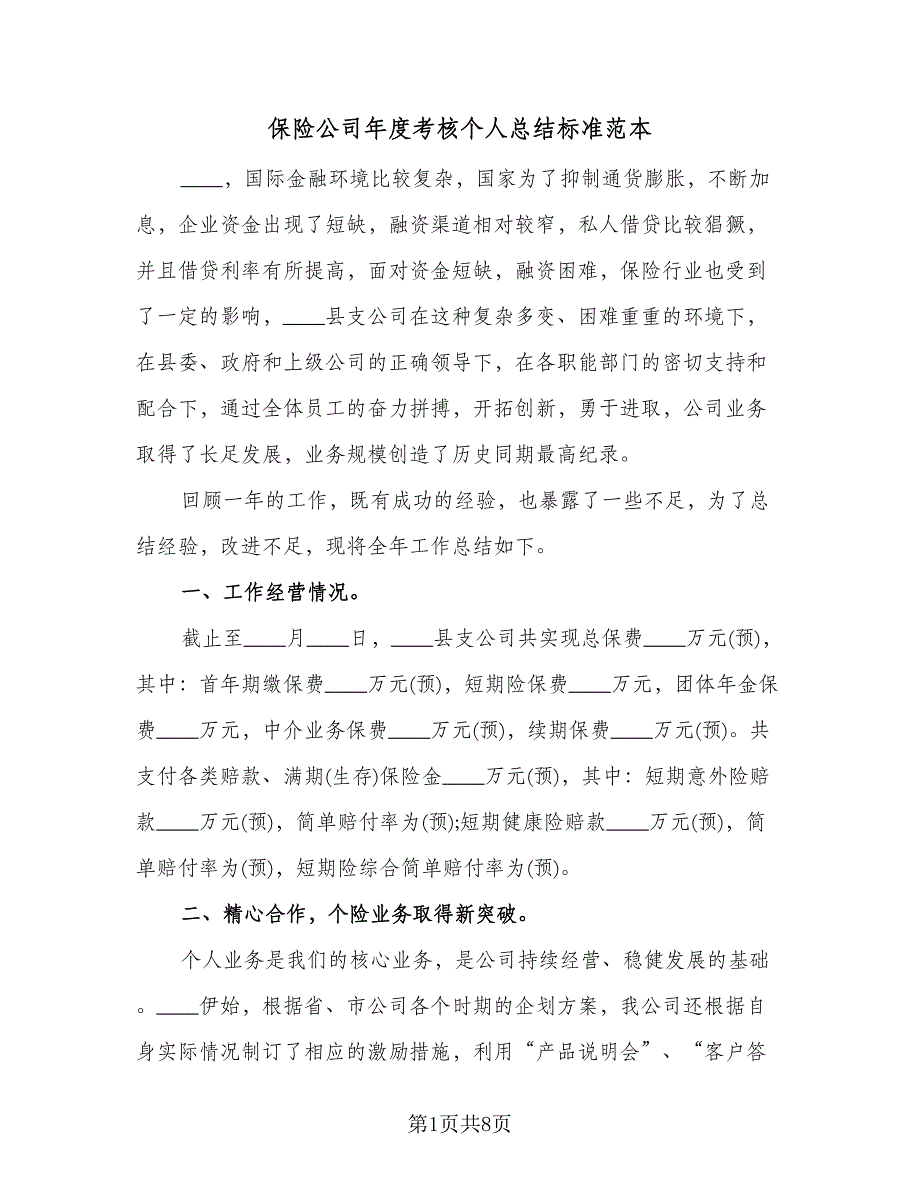 保险公司年度考核个人总结标准范本
____，国际金融环境比较复杂，国家为了抑制通货膨胀，不断加
息，企业资金出现了短缺，融资渠道相对较窄，私人借贷比较猖獗，
并且借贷利率有所提高，面对资金短缺，融资困难，保险行业也受到
了一定的影响，____县支公司在这种复杂多变、困难重重的环境下，
在县委、政府和上级公司的正确领导下，在各职能部门的密切支持和
配合下，通过全体员工的奋力拼搏，开拓创新，勇于进取，公司业务
取得了长足发展，业务规模创造了历史同期最高纪录。
回顾一年的工作，既有成功的经验，也暴露了一些不足，为了总
结经验，改进不足，现将全年工作总结如下。
一、工作经营情况。
截止至____月____日，____县支公司共实现总保费____万元(预)，
其中：首年期缴保费____万元(预)，短期险保费____万元，团体年金保
费____万元，中介业务保费____万元(预)，续期保费____万元(预)。共
支付各类赔款、满期(生存)保险金____万元(预)，其中：短期意外险赔
款____万元(预)，简单赔付率为(预);短期健康险赔款____万元(预)，简
单赔付率为(预)，短期险综合简单赔付率为(预)。
二、精心合作，个险业务取得新突破。
个人业务是我们的核心业务，是公司持续经营、稳健发展的基础
。____伊始，根据省、市公司各个时期的企划方案，我公司还根据自
身实际情况制订了相应的激励措施，利用“产品说明会”、“客户答
第1页共8页